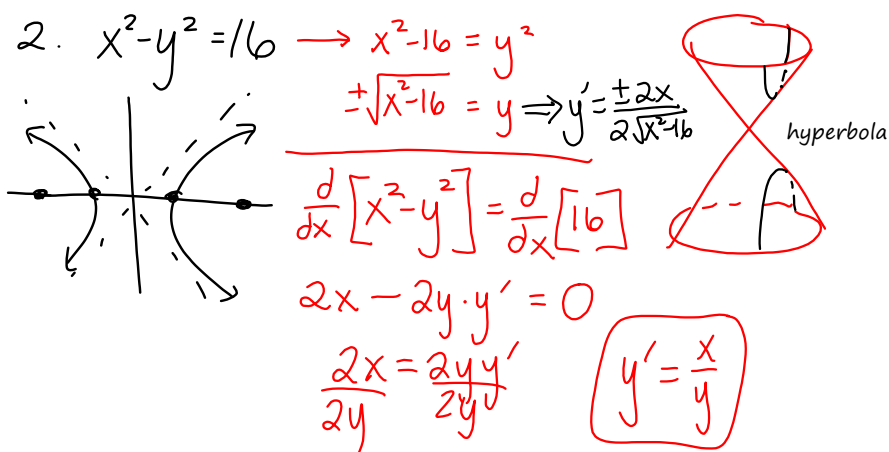 2. x²-y²=16 → x²-16 = y²
±√(x²-16) = y ⇒ y′ = ±2x / 2√(x²-16)
hyperbola
d/dx [x²-y²] = d/dx [16]
2x - 2y·y′ = 0
2x/2y = 2yy′/2y
y′ = x/y